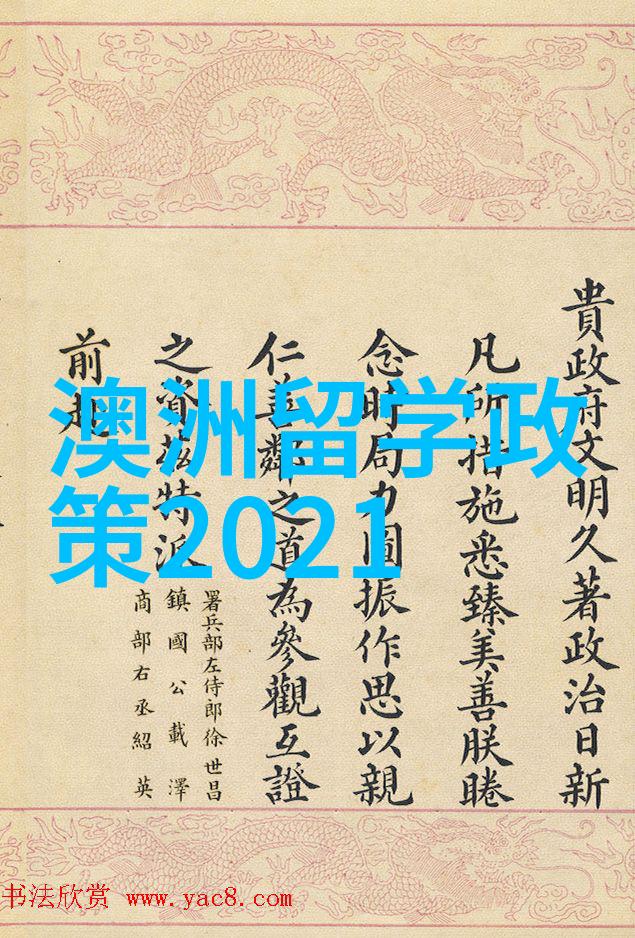 貴政府文明久著政治日新
凡所措施悉臻美善朕睠
念時局力圖振作思以親
仁善鄰之道為參觀互證
之資茲特派
署兵部左侍郎徐世昌
鎮國公載澤
商部右丞紹英
前赴
澳洲留学政
策2021
书法欣赏 www.yac8.com